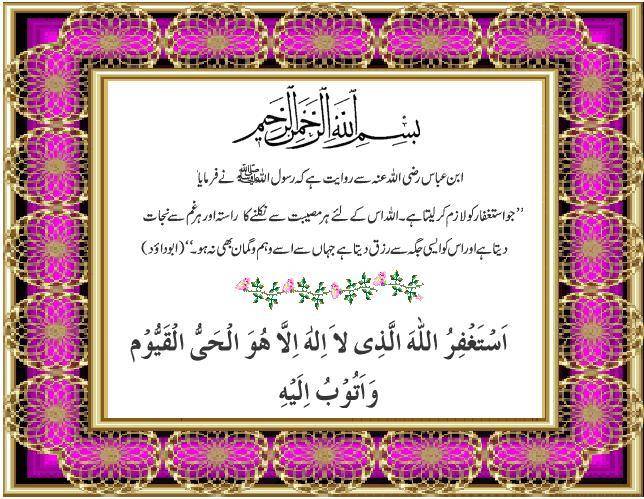 بِسْمِ اللّٰهِ الرَّحْمٰنِ الرَّحِيْمِ
ابن عباس رضی اللہ عنہ سے روایت ہے کہ رسول اللہ ﷺ نے فرمایا
’’جو استغفار کو لازم کر لیتا ہے۔ اللہ اس کے لئے ہر مصیبت سے نکلنے کا راستہ اور ہر غم سے نجات
دیتا ہے اور اس کو ایسی جگہ سے رزق دیتا ہے جہاں سے اسے وہم و گمان بھی نہ ہو۔‘‘ (ابوداؤد)
اَسْتَغْفِرُ اللّٰهَ الَّذِى لاَ اِلٰهَ اِلاَّ هُوَ الْحَىُّ الْقَيُّوْم
وَاَتُوْبُ اِلَيْهِ